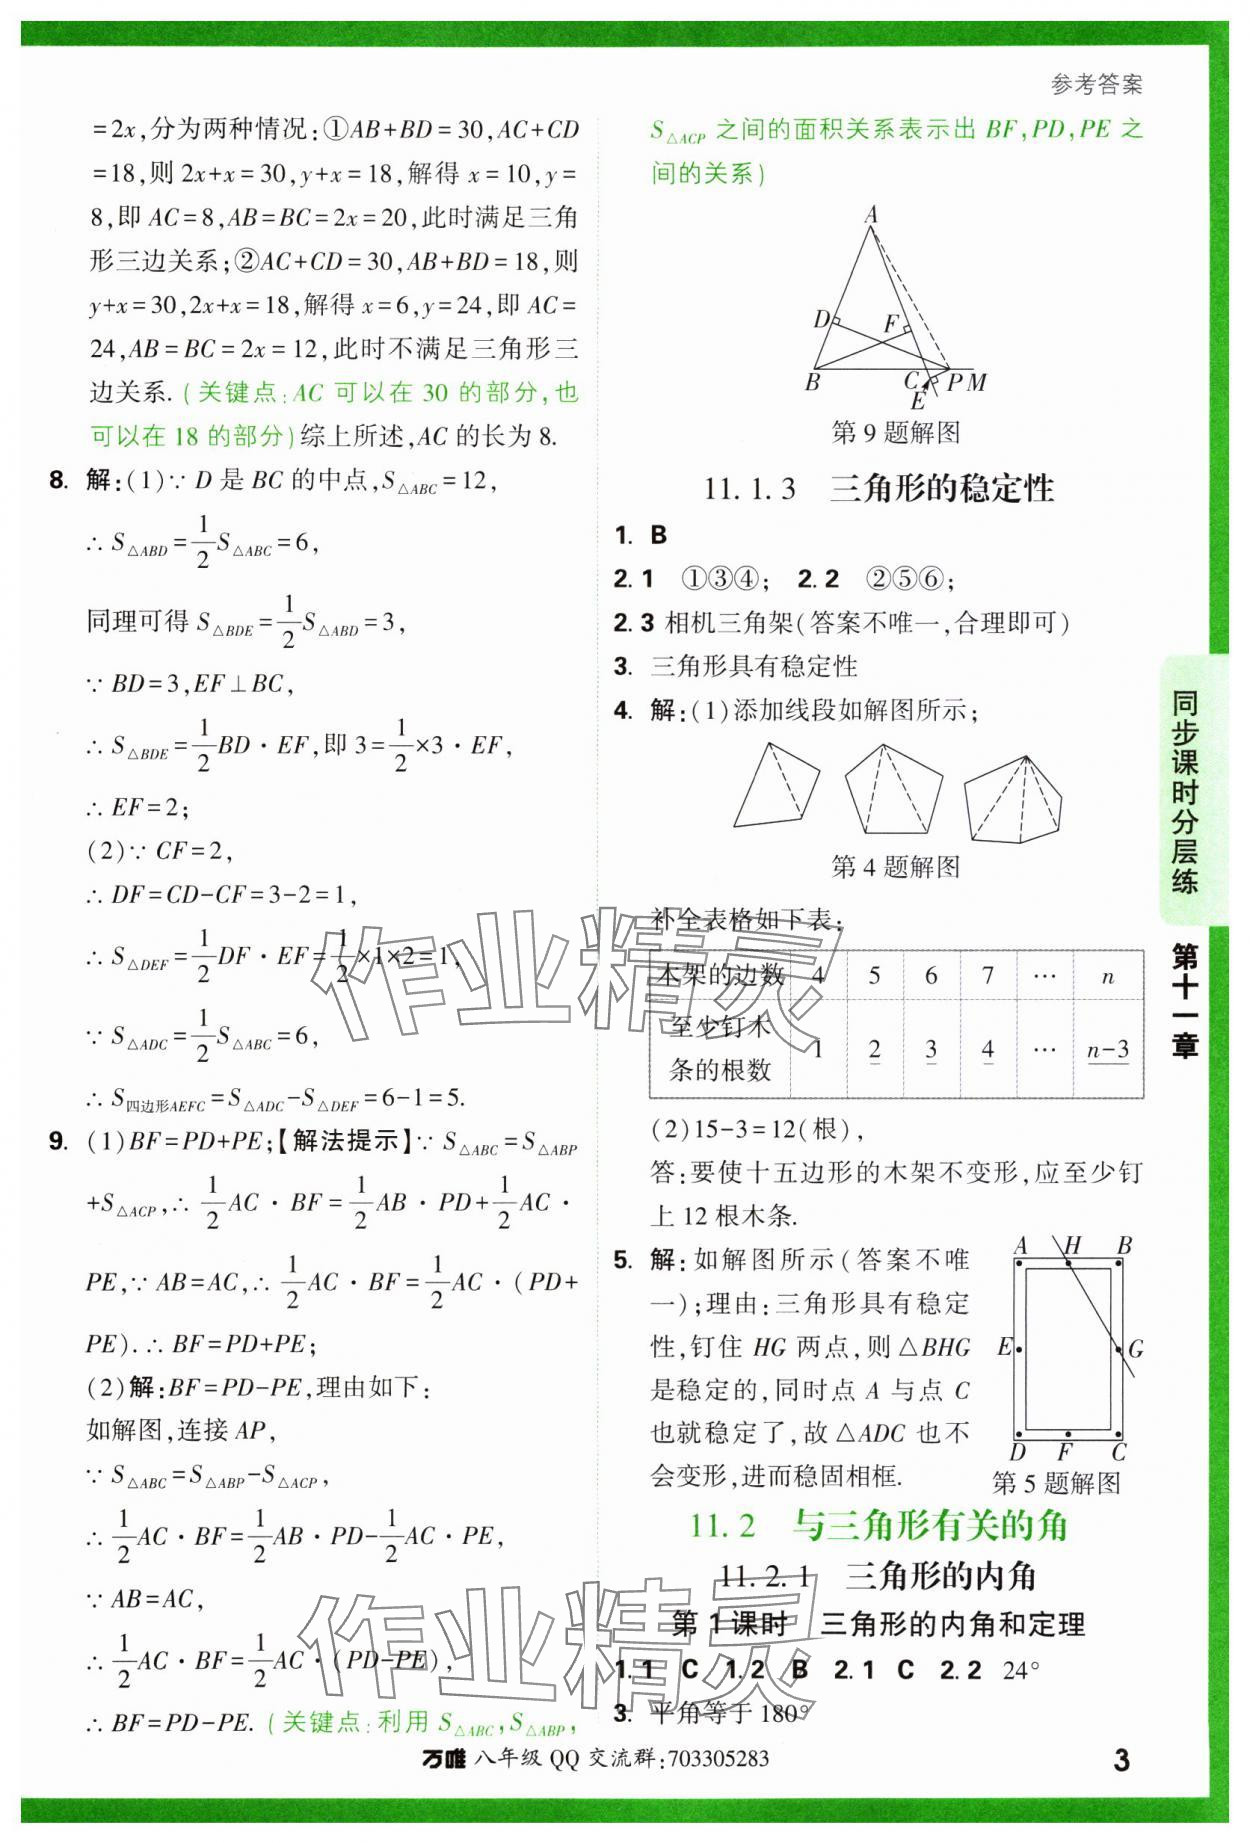 参考答案
=2x,分为两种情况:①AB+BD=30,AC+CD
=18,则 2x+x=30,y+x=18,解得 x=10,y=
8,即 AC=8,AB=BC=2x=20,此时满足三角
形三边关系;②AC+CD=30,AB+BD=18,则
y+x=30,2x+x=18,解得 x=6,y=24,即 AC=
24,AB=BC=2x=12,此时不满足三角形三
边关系.(关键点:AC 可以在 30 的部分,也
可以在 18 的部分)综上所述,AC 的长为 8.
8. 解:(1)∵ D 是 BC 的中点,S△ABC=12,
∴ S△ABD=1/2S△ABC=6,
同理可得 S△BDE=1/2S△ABD=3,
∵ BD=3,EF⊥BC,
∴ S△BDE=1/2BD·EF,即 3=1/2×3·EF,
∴ EF=2;
(2)∵ CF=2,
∴ DF=CD-CF=3-2=1,
∴ S△DEF=1/2DF·EF=1/2×1×2=1,
∵ S△ADC=1/2S△ABC=6,
∴ S四边形AEFC=S△ADC-S△DEF=6-1=5.
9. (1)BF=PD+PE;【解法提示】∵ S△ABC=S△ABP
+S△ACP,∴ 1/2AC·BF=1/2AB·PD+1/2AC·
PE,∵ AB=AC,∴ 1/2AC·BF=1/2AC·(PD+
PE).∴ BF=PD+PE;
(2)解:BF=PD-PE,理由如下:
如解图,连接 AP,
∵ S△ABC=S△ABP-S△ACP,
∴ 1/2AC·BF=1/2AB·PD-1/2AC·PE,
∵ AB=AC,
∴ 1/2AC·BF=1/2AC·(PD-PE),
∴ BF=PD-PE.(关键点:利用 S△ABC,S△ABP,
S△ACP 之间的面积关系表示出 BF,PD,PE 之
间的关系)
A
D
F
B
C
P M
E
第 9 题解图
11.1.3 三角形的稳定性
1. B
2.1 ①③④; 2.2 ②⑤⑥;
2.3 相机三角架(答案不唯一,合理即可)
3. 三角形具有稳定性
4. 解:(1)添加线段如解图所示;
第 4 题解图
补全表格如下表:
木架的边数 4 5 6 7 … n
至少钉木
条的根数 1 2 3 4 … n-3
(2)15-3=12(根),
答:要使十五边形的木架不变形,应至少钉
上 12 根木条.
5. 解:如解图所示(答案不唯
一);理由:三角形具有稳定
性,钉住 HG 两点,则 △BHG
是稳定的,同时点 A 与点 C
也就稳定了,故 △ADC 也不
会变形,进而稳固相框.
A H B
E
G
D F C
第 5 题解图
11.2 与三角形有关的角
11.2.1 三角形的内角
第 1 课时 三角形的内角和定理
1.1 C 1.2 B 2.1 C 2.2 24°
3. 平角等于 180°
同步课时分层练
第十一章
作业精灵
作业精灵
万唯 八年级 QQ 交流群:703305283
3